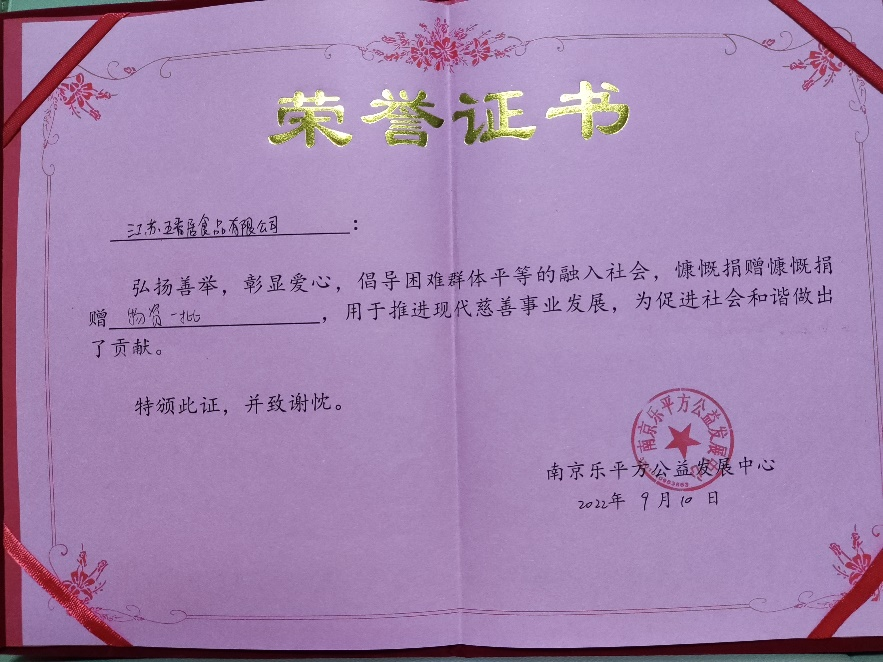 荣誉证书
江苏五香居食品有限公司：
弘扬善举，彰显爱心，倡导困难群体平等的融入社会，慷慨捐赠慷慨捐
赠物资一批，用于推进现代慈善事业发展，为促进社会和谐做出
了贡献。
特颁此证，并致谢忱。
南京乐平方公益发展中心
南京乐平方公益发展中心
2022年 9月10日